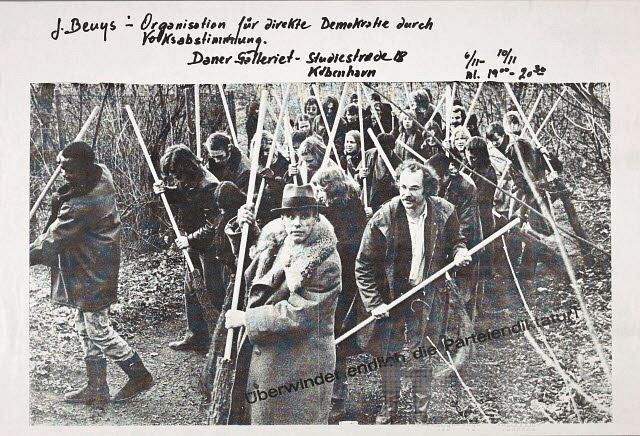 J. Beuys - Organisation für direkte Demokratie durch
Volksabstimmung.
Daner Galleriet - Studiestræde 18
København
6/11- 10/11
kl. 19⁰⁰ - 20³⁰
Überwindet endlich die Parteiendiktatur!